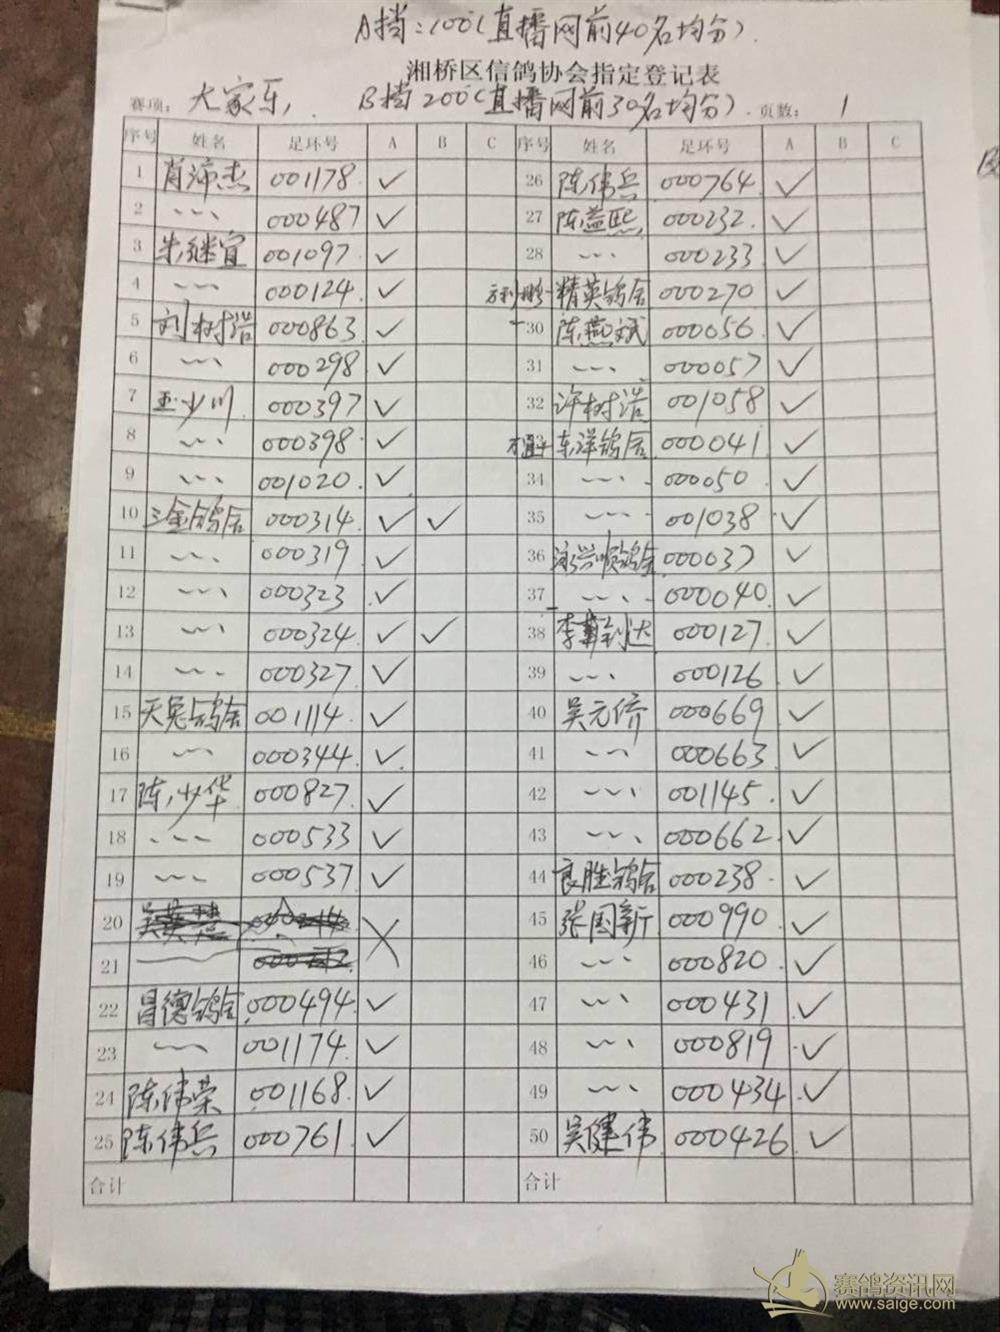 A挡:100(直播网前40名均分).
湘桥区信鸽协会指定登记表
赛项: 大家乐, B挡200(直播网前30名均分). 页数: 1
序号 姓名 足环号 A B C 序号 姓名 足环号 A B C
1 肖沛杰 001178 ✓ 26 陈伟兵 000764 ✓
2 〃 000487 ✓ 27 陈益熙 000232 ✓
3 朱继宜 001097 ✓ 28 〃 000233 ✓
4 〃 000124 ✓ 精英鸽舍 000270 ✓
5 刘树浩 000863 ✓ 30 陈燕斌 000056 ✓
6 〃 000298 ✓ 31 〃 000057 ✓
7 少川 000397 ✓ 32 许树浩 001058 ✓
8 〃 000398 ✓ 东洋鸽舍 000041 ✓
9 〃 001020 ✓ 34 〃 000050 ✓
10 三金鸽舍 000314 ✓ ✓ 35 〃 001038 ✓
11 〃 000319 ✓ 36 兴顺鸽舍 000037 ✓
12 〃 000323 ✓ 37 〃 000040 ✓
13 〃 000324 ✓ ✓ 38 李 钊达 000127 ✓
14 〃 000327 ✓ 39 〃 000126 ✓
15 天兔鸽舍 001114 ✓ 40 吴元侨 000669 ✓
16 〃 000344 ✓ 41 〃 000663 ✓
17 陈少华 000827 ✓ 42 〃 001145 ✓
18 〃 000533 ✓ 43 〃 000662 ✓
19 〃 000537 ✓ 44 良胜鸽舍 000238 ✓
20 45 张国新 000990 ✓
21 46 〃 000820 ✓
22 昌德鸽舍 000494 ✓ 47 〃 000431 ✓
23 〃 001174 ✓ 48 〃 000819 ✓
24 陈伟荣 001168 ✓ 49 〃 000434 ✓
25 陈伟兵 000761 ✓ 50 吴健伟 000426 ✓
合计 合计
赛鸽资讯网
www.saige.com